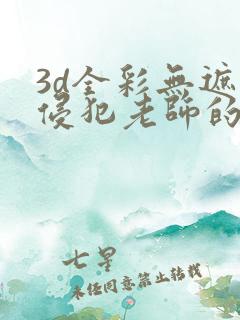 3d全彩無遮
侵犯老師的
七星
未經同意禁止轉載